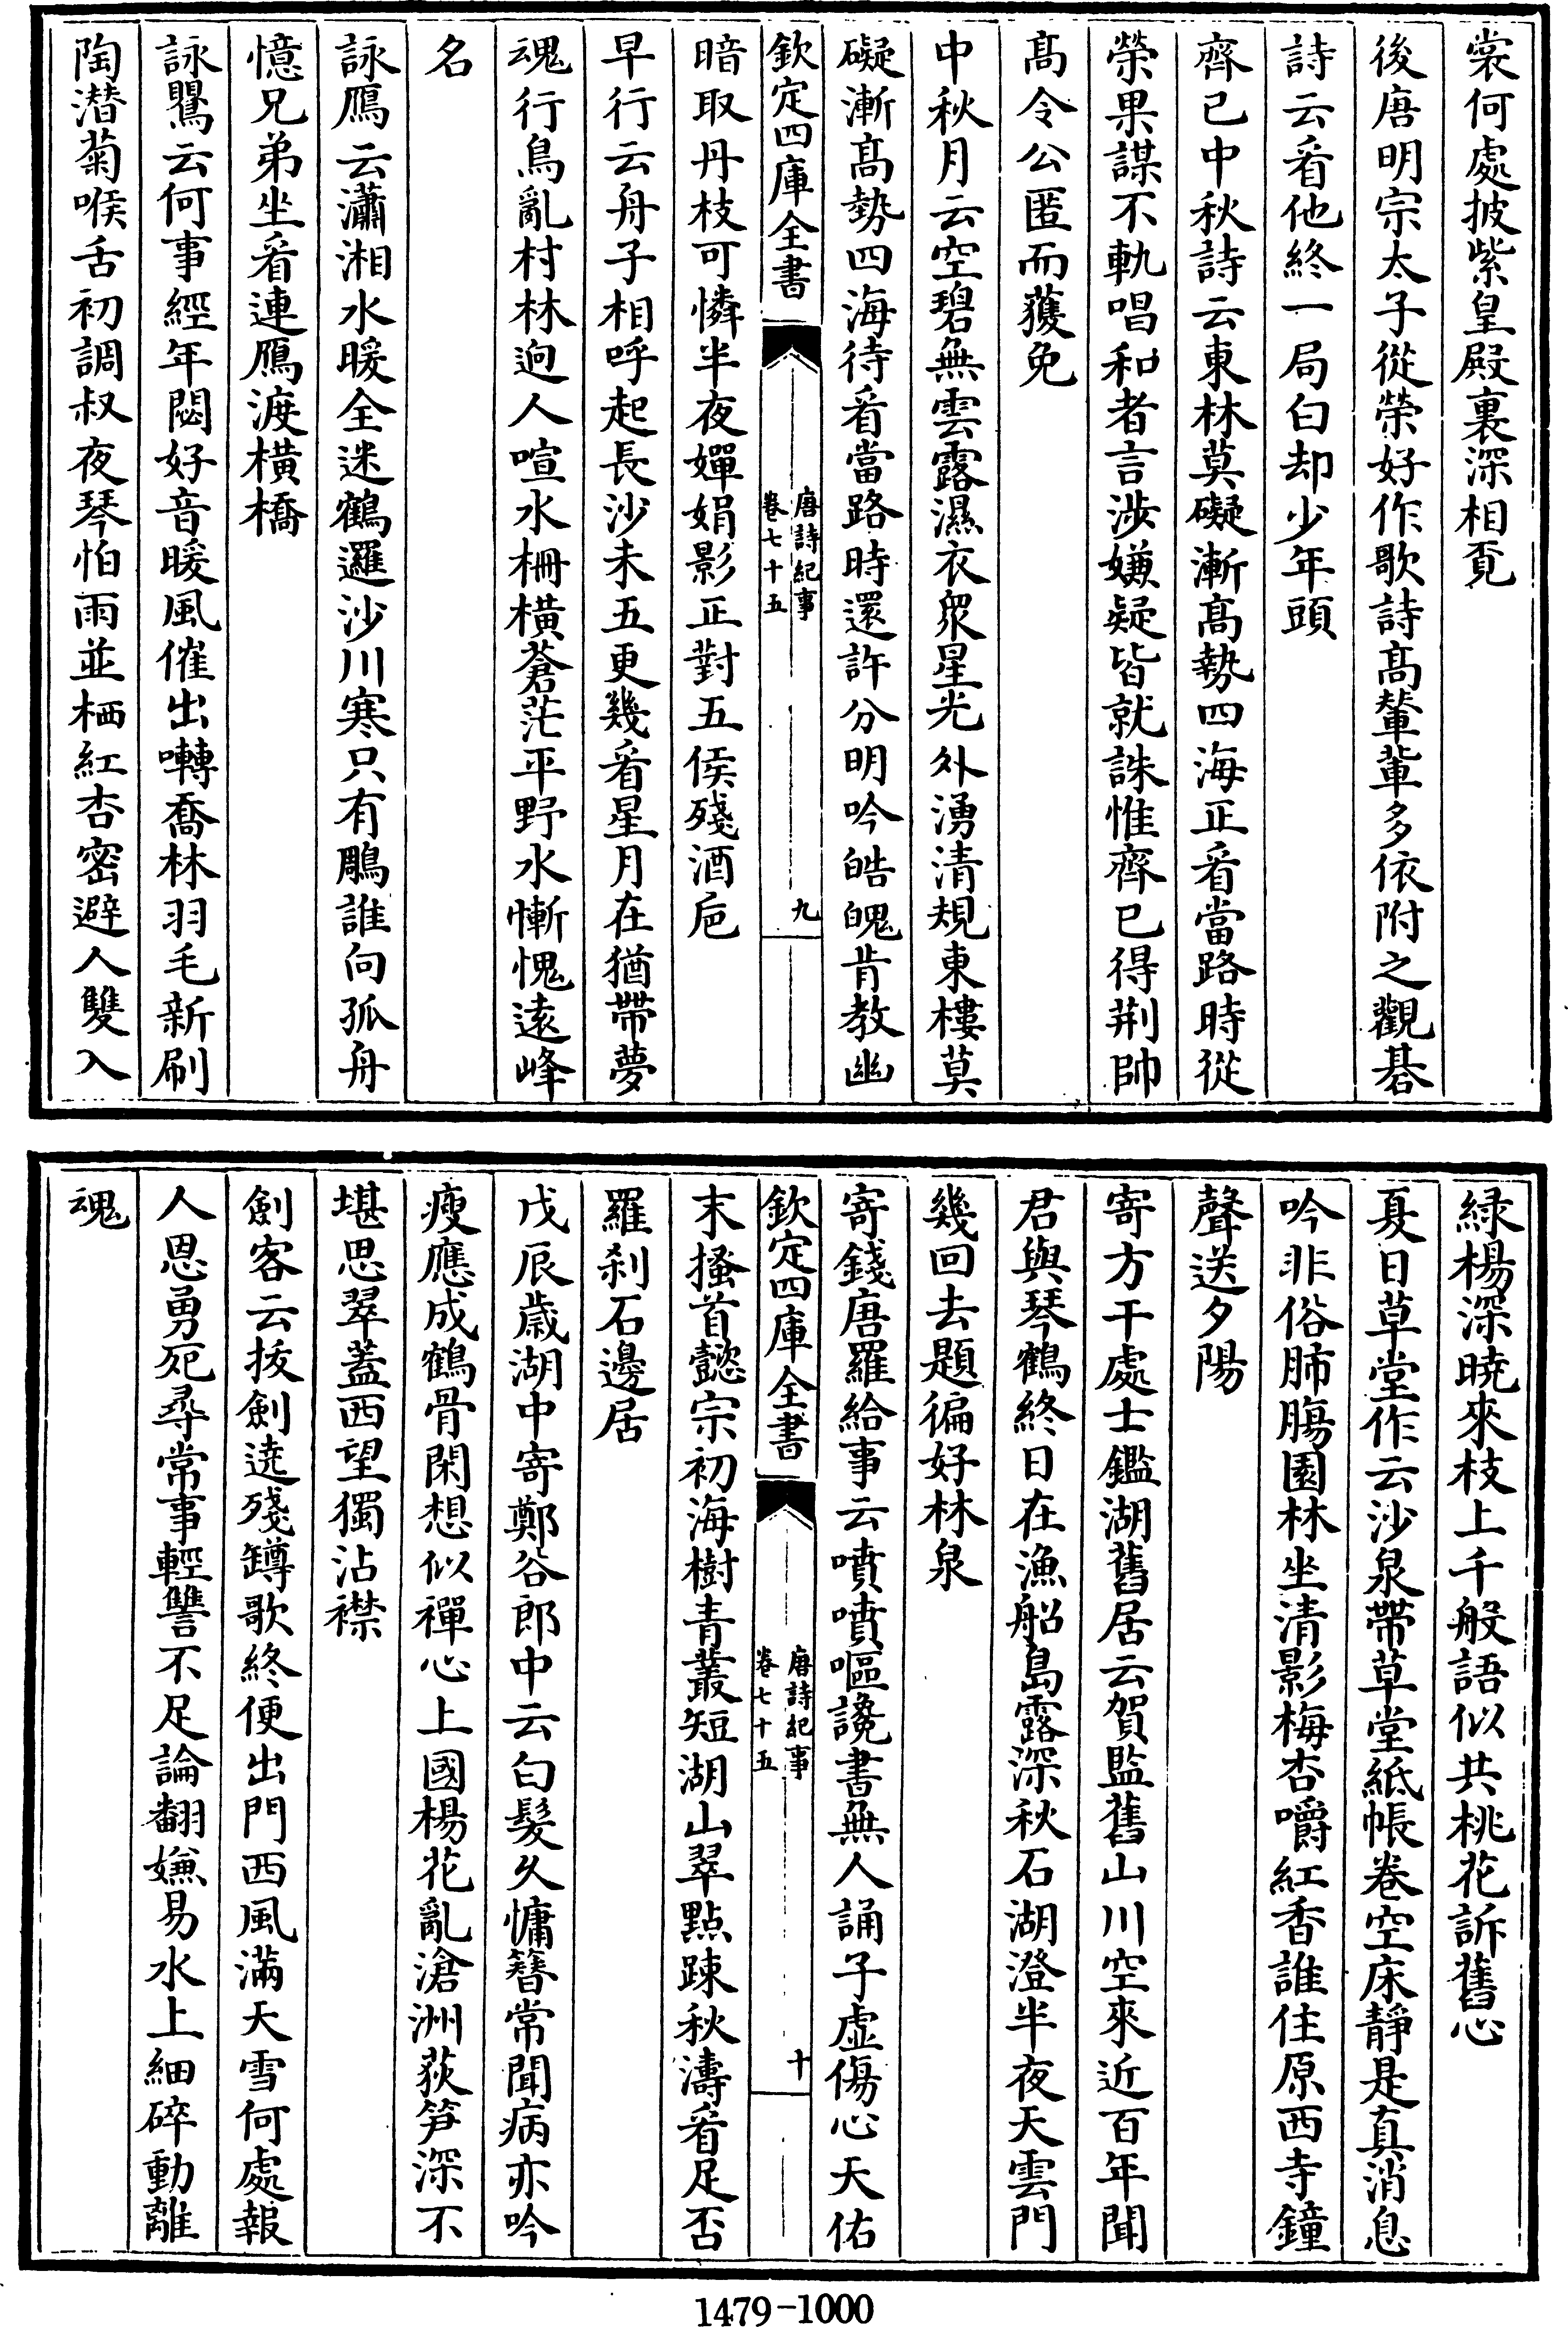 裳何處披紫皇殿裏深相覓
後唐明宗太子從榮好作歌詩高輦輩多依附之觀碁
詩云看他終一局白却少年頭
齊已中秋詩云東林莫礙漸高勢四海正看當路時從
榮果謀不軌唱和者言涉嫌疑皆就誅惟齊已得荆帥
髙令公匿而獲免
中秋月云空碧無雲露濕衣衆星光外湧清規東樓莫
礙漸髙勢四海待看當路時還許分明吟皓魄肯教幽
欽定四庫全書
唐詩紀事
卷七十五
九
暗取丹枝可憐半夜嬋娟影正對五侯殘酒巵
早行云舟子相呼起長沙未五更幾看星月在猶帶夢
魂行鳥亂村林逈人喧水柵橫蒼茫平野水慚愧遠峰
名
詠鴈云瀟湘水暖全迷鶴邏沙川寒只有鵰誰向孤舟
憶兄弟坐看連鴈渡橫橋
詠鸎云何事經年閟好音暖風催出囀喬林羽毛新刷
陶潛菊喉舌初調叔夜琴怕雨並栖紅杏密避人雙入
緑楊深曉來枝上千般語似共桃花訴舊心
夏日草堂作云沙泉帶草堂紙帳卷空床靜是真消息
吟非俗肺腸園林坐清影梅杏嚼紅香誰住原西寺鐘
聲送夕陽
寄方干處士鑑湖舊居云賀監舊山川空來近百年聞
君與琴鶴終日在漁船島露深秋石湖澄半夜天雲門
幾回去題徧好林泉
寄錢唐羅給事云嘖嘖嘔讒書無人誦子虛傷心天佑
欽定四庫全書
唐詩紀事
卷七十五
十
末搔首懿宗初海樹青叢短湖山翠點踈秋濤看足否
羅刹石邊居
戊辰歲湖中寄鄭谷郎中云白髮久慵簪常聞病亦吟
瘦應成鶴骨閑想似禪心上國楊花亂滄洲荻笋深不
堪思翠蓋西望獨沾襟
劍客云拔劍遶殘罇歌終便出門西風滿天雪何處報
人恩勇死尋常事輕讐不足論翻嫌易水上細碎動離
魂
1479-1000